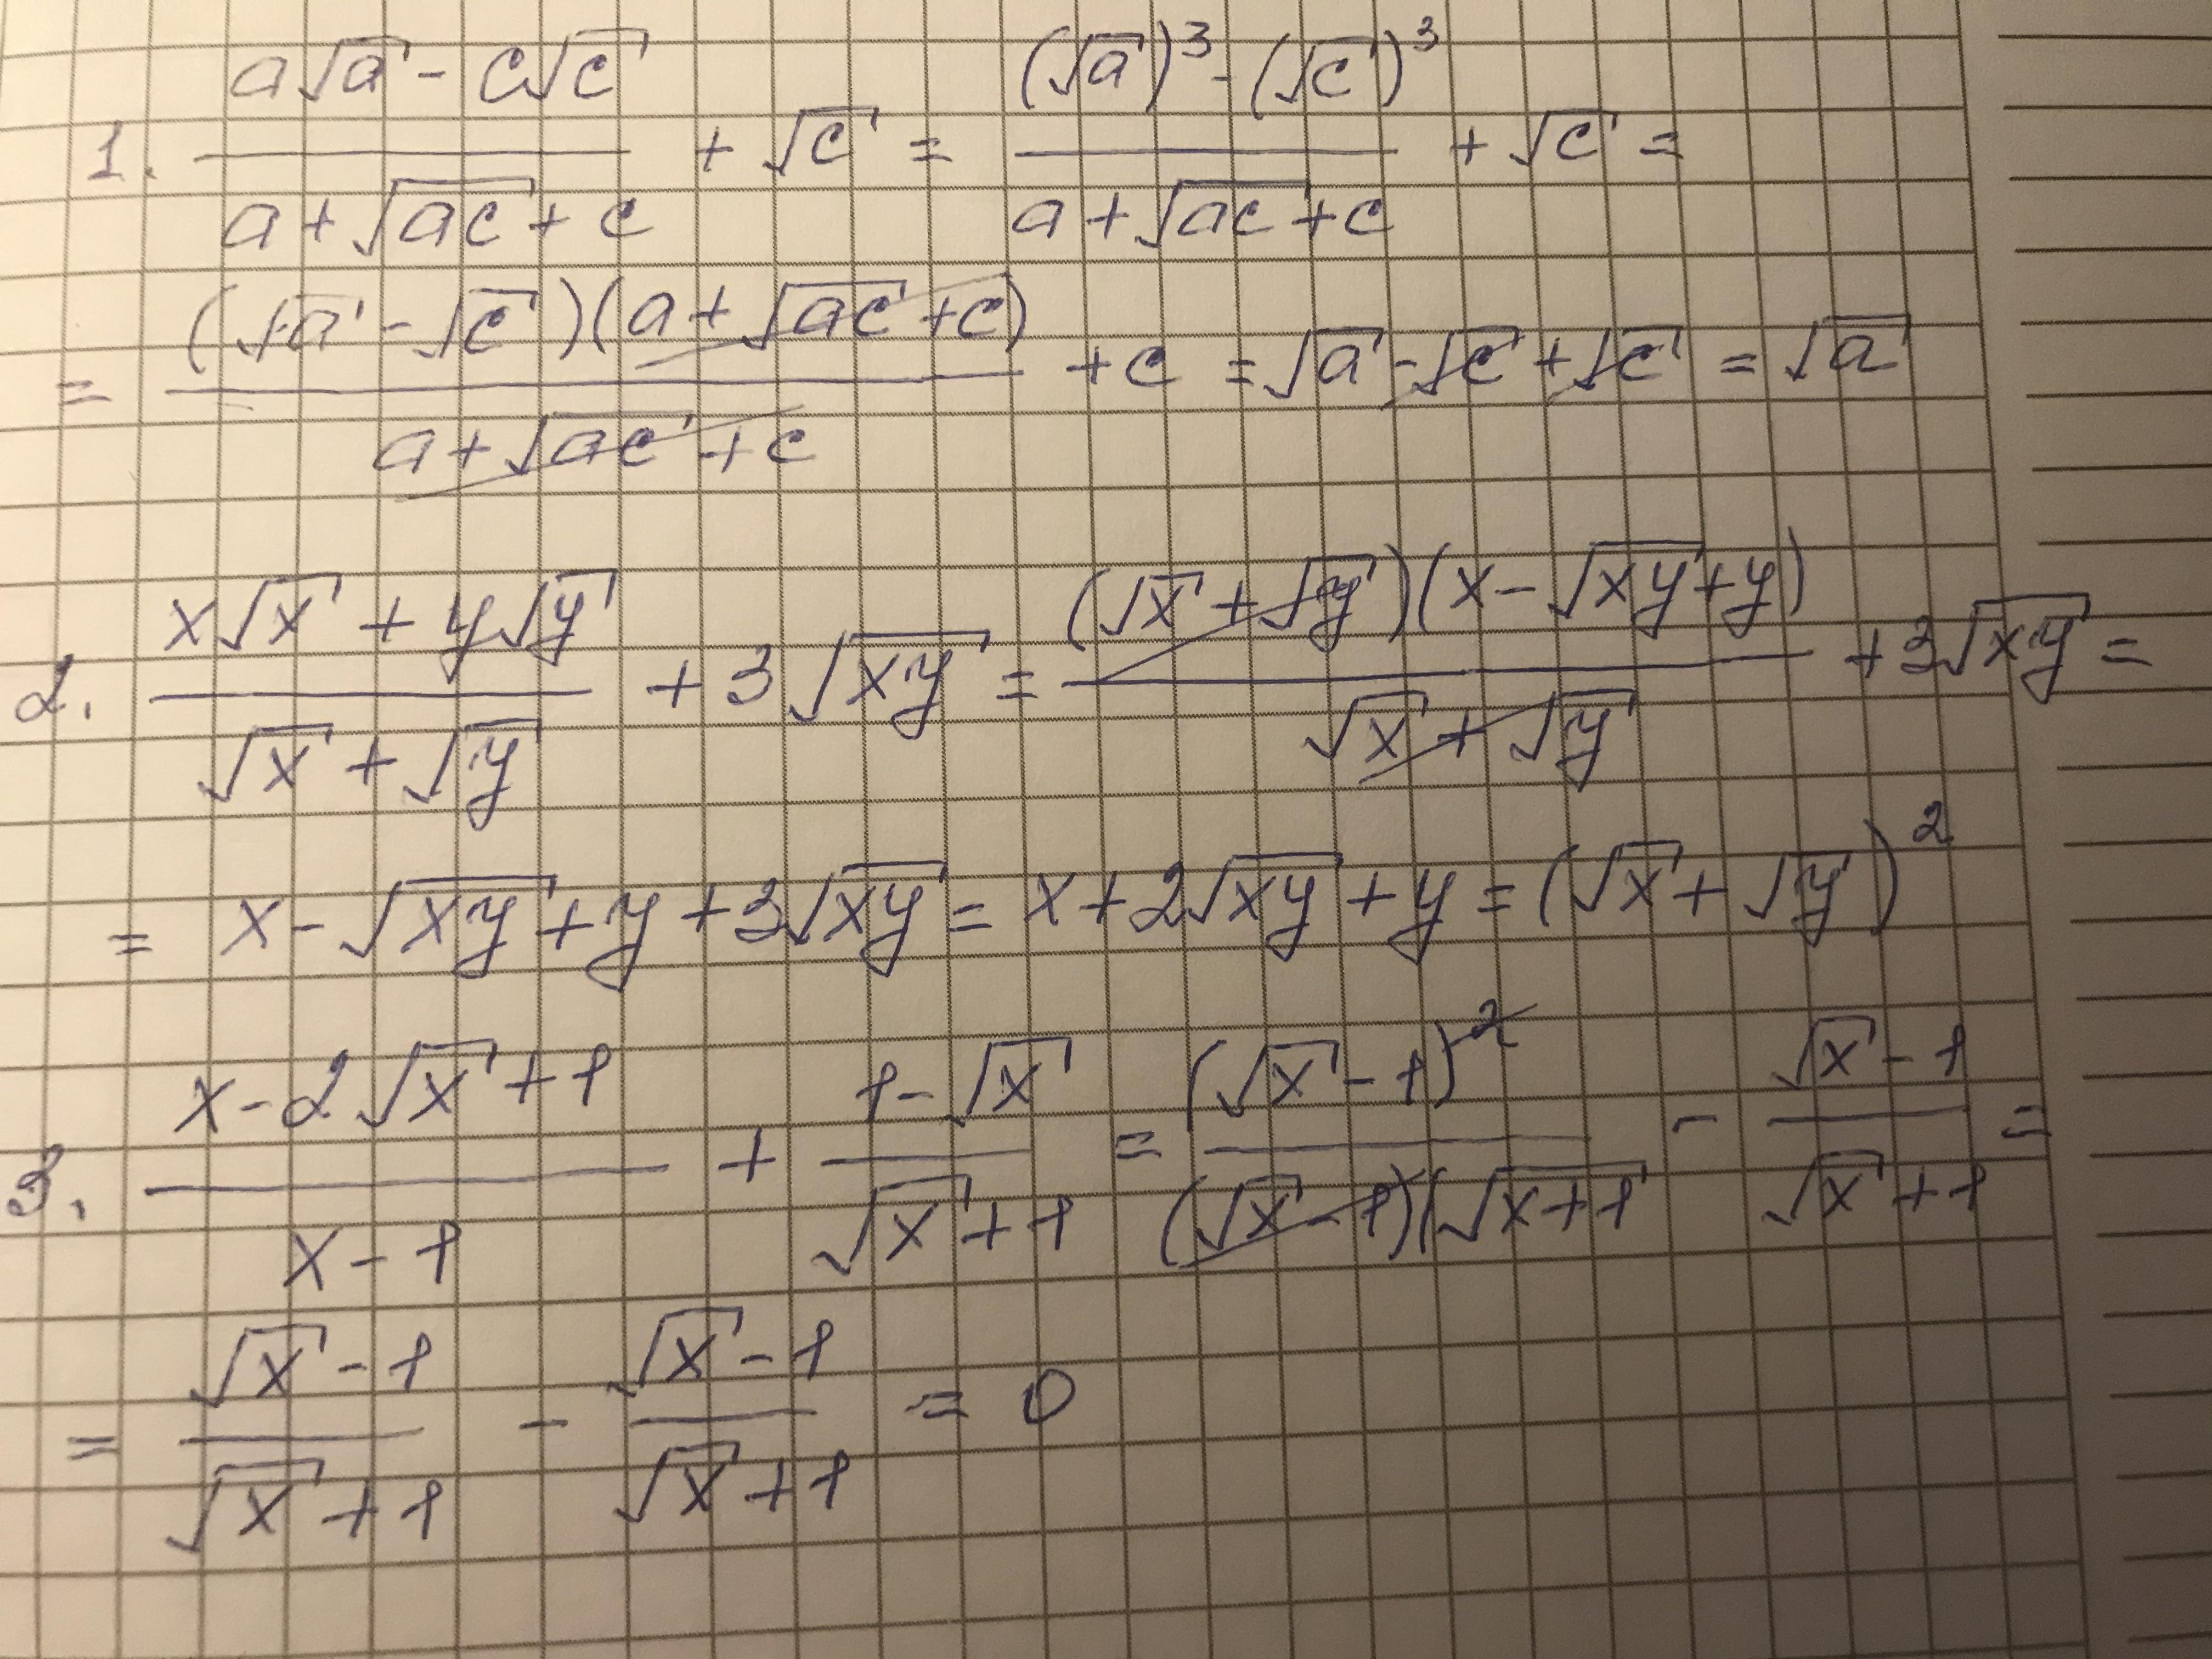 1. (a√a - c√c)/(a + √ac + c) + √c = ((√a)³ - (√c)³)/(a + √ac + c) + √c =
= ((√a - √c)(a + √ac + c))/(a + √ac + c) + c = √a - √c + √c = √a
2. (x√x + y√y)/(√x + √y) + 3√xy = ((√x + √y)(x - √xy + y))/(√x + √y) + 3√xy =
= x - √xy + y + 3√xy = x + 2√xy + y = (√x + √y)²
3. (x - 2√x + 1)/(x - 1) + (1 - √x)/(√x + 1) = (√x - 1)²/((√x - 1)(√x+1) - (√x - 1)/(√x + 1) =
= (√x - 1)/(√x + 1) - (√x - 1)/(√x + 1) = 0